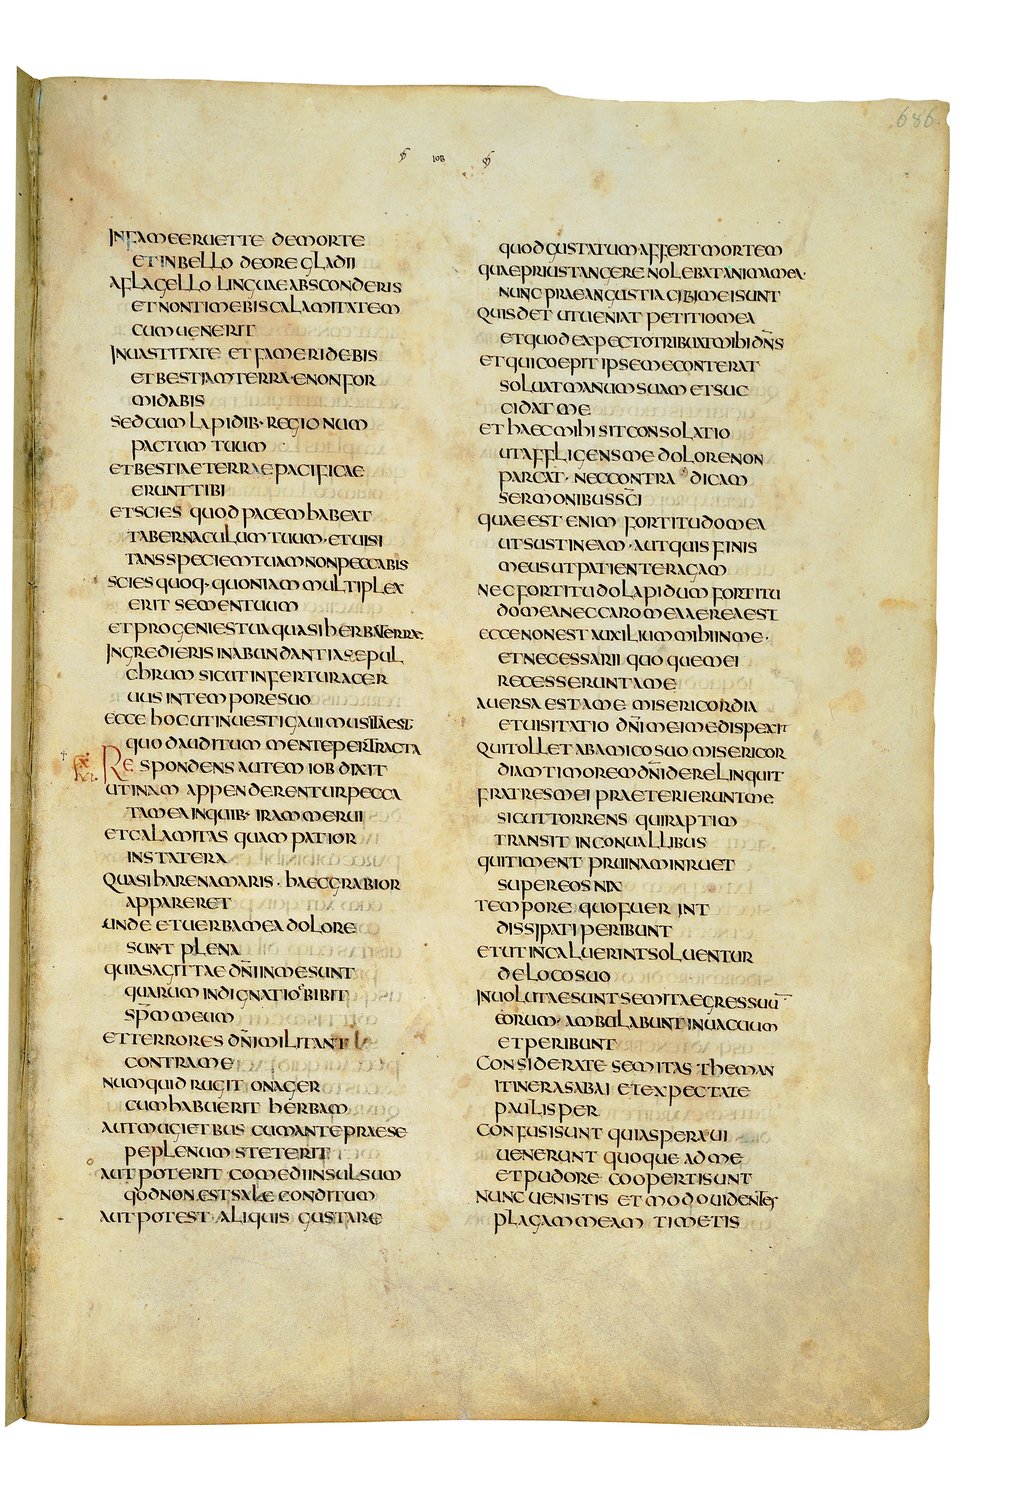 686
IOB
IN FAME ERUET TE DE MORTE
ET IN BELLO DE ORE GLADII
A FLAGELLO LINGUAE ABSCONDERIS
ET NON TIMEBIS CALAMITATEM
CUM UENERIT
IN UASTITATE ET FAME RIDEBIS
ET BESTIAM TERRAE NON FOR
MIDABIS
SED CUM LAPIDIB· REGIONUM
PACTUM TUUM
ET BESTIAE TERRAE PACIFICAE
ERUNT TIBI
ET SCIES QUOD PACEM HABEAT
TABERNACULUM TUUM· ET UISI
TANS SPECIEM TUAM NON PECCABIS
SCIES QUOQ· QUONIAM MULTIPLEX
ERIT SEMEN TUUM
ET PROGENIES TUA QUASI HERBA TERRAE·
INGREDIERIS IN ABUNDANTIA SEPUL
CHRUM SICUT INFERTUR ACER
UUS IN TEMPORE SUO
ECCE HOC UT INUESTIGAUIMUS ITA EST
QUOD AUDITUM MENTE PERTRACTA
RESPONDENS AUTEM IOB DIXIT
UTINAM APPENDERENTUR PECCA
TA MEA IN QUIB· IRAM MERUI
ET CALAMITAS QUAM PATIOR
IN STATERA
QUASI HARENA MARIS· HAEC GRABIOR
APPARERET
UNDE ET UERBA MEA DOLORE
SUNT PLENA
QUIA SAGITTAE DÑI IN ME SUNT
QUARUM INDIGNATIO BIBIT
SPM̄ MEUM
ET TERRORES DÑI MILITANT
CONTRA ME
NUMQUID RUGIT ONAGER
CUM HABUERIT HERBAM
AUT MUGIET BUS CUM ANTE PRAESE
PE PLENUM STETERIT
AUT POTERIT COMEDI INSULSUM
QOD NON EST SALE CONDITUM
AUT POTEST ALIQUIS GUSTARE
QUOD GUSTATUM AFFERT MORTEM
QUAE PRIUS TANGERE NOLEBAT ANIMA MEA·
NUNC PRAE ANGUSTIA CIBI MEI SUNT
QUIS DET UT UENIAT PETITIO MEA
ET QUOD EXPECTO TRIBUAT MIHI DÑS
ET QUI COEPIT IPSE ME CONTERAT
SOLUAT MANUM SUAM ET SUC
CIDAT ME
ET HAEC MIHI SIT CONSOLATIO
UT AFFLIGENS ME DOLORE NON
PARCAT· NEC CONTRADICAM
SERMONIBUS SC̄I
QUAE EST ENIM FORTITUDO MEA
UT SUSTINEAM· AUT QUIS FINIS
MEUS UT PATIENTER AGAM
NEC FORTITUDO LAPIDUM FORTITU
DO MEA NEC CARO MEA AEREA EST
ECCE NON EST AUXILIUM MIHI IN ME·
ET NECESSARII QUOQUE MEI
RECESSERUNT A ME
AUERSA EST A ME MISERICORDIA
ET UISITATIO DÑI MEI ME DISPEXIT
QUI TOLLET AB AMICO SUO MISERICOR
DIAM TIMOREM DÑI DERELINQUIT
FRATRES MEI PRAETERIERUNT ME
SICUT TORRENS QUI RAPTIM
TRANSIT IN CONUALLIBUS
QUI TIMENT PRUINAM INRUET
SUPER EOS NIX
TEMPORE QUO FUERINT
DISSIPATI PERIBUNT
ET UT INCALUERINT SOLUENTUR
DE LOCO SUO
INUOLUTAE SUNT SEMITAE GRESSUŪ
EORUM· AMBULABUNT IN UACUUM
ET PERIBUNT
CONSIDERATE SEMITAS THEMAN
ITINERA SABAI ET EXPECTATE
PAULISPER
CONFUSI SUNT QUIA SPERAUI
UENERUNT QUOQUE AD ME
ET PUDORE COOPERTI SUNT
NUNC UENISTIS ET MODO UIDENTES
PLAGAM MEAM TIMETIS